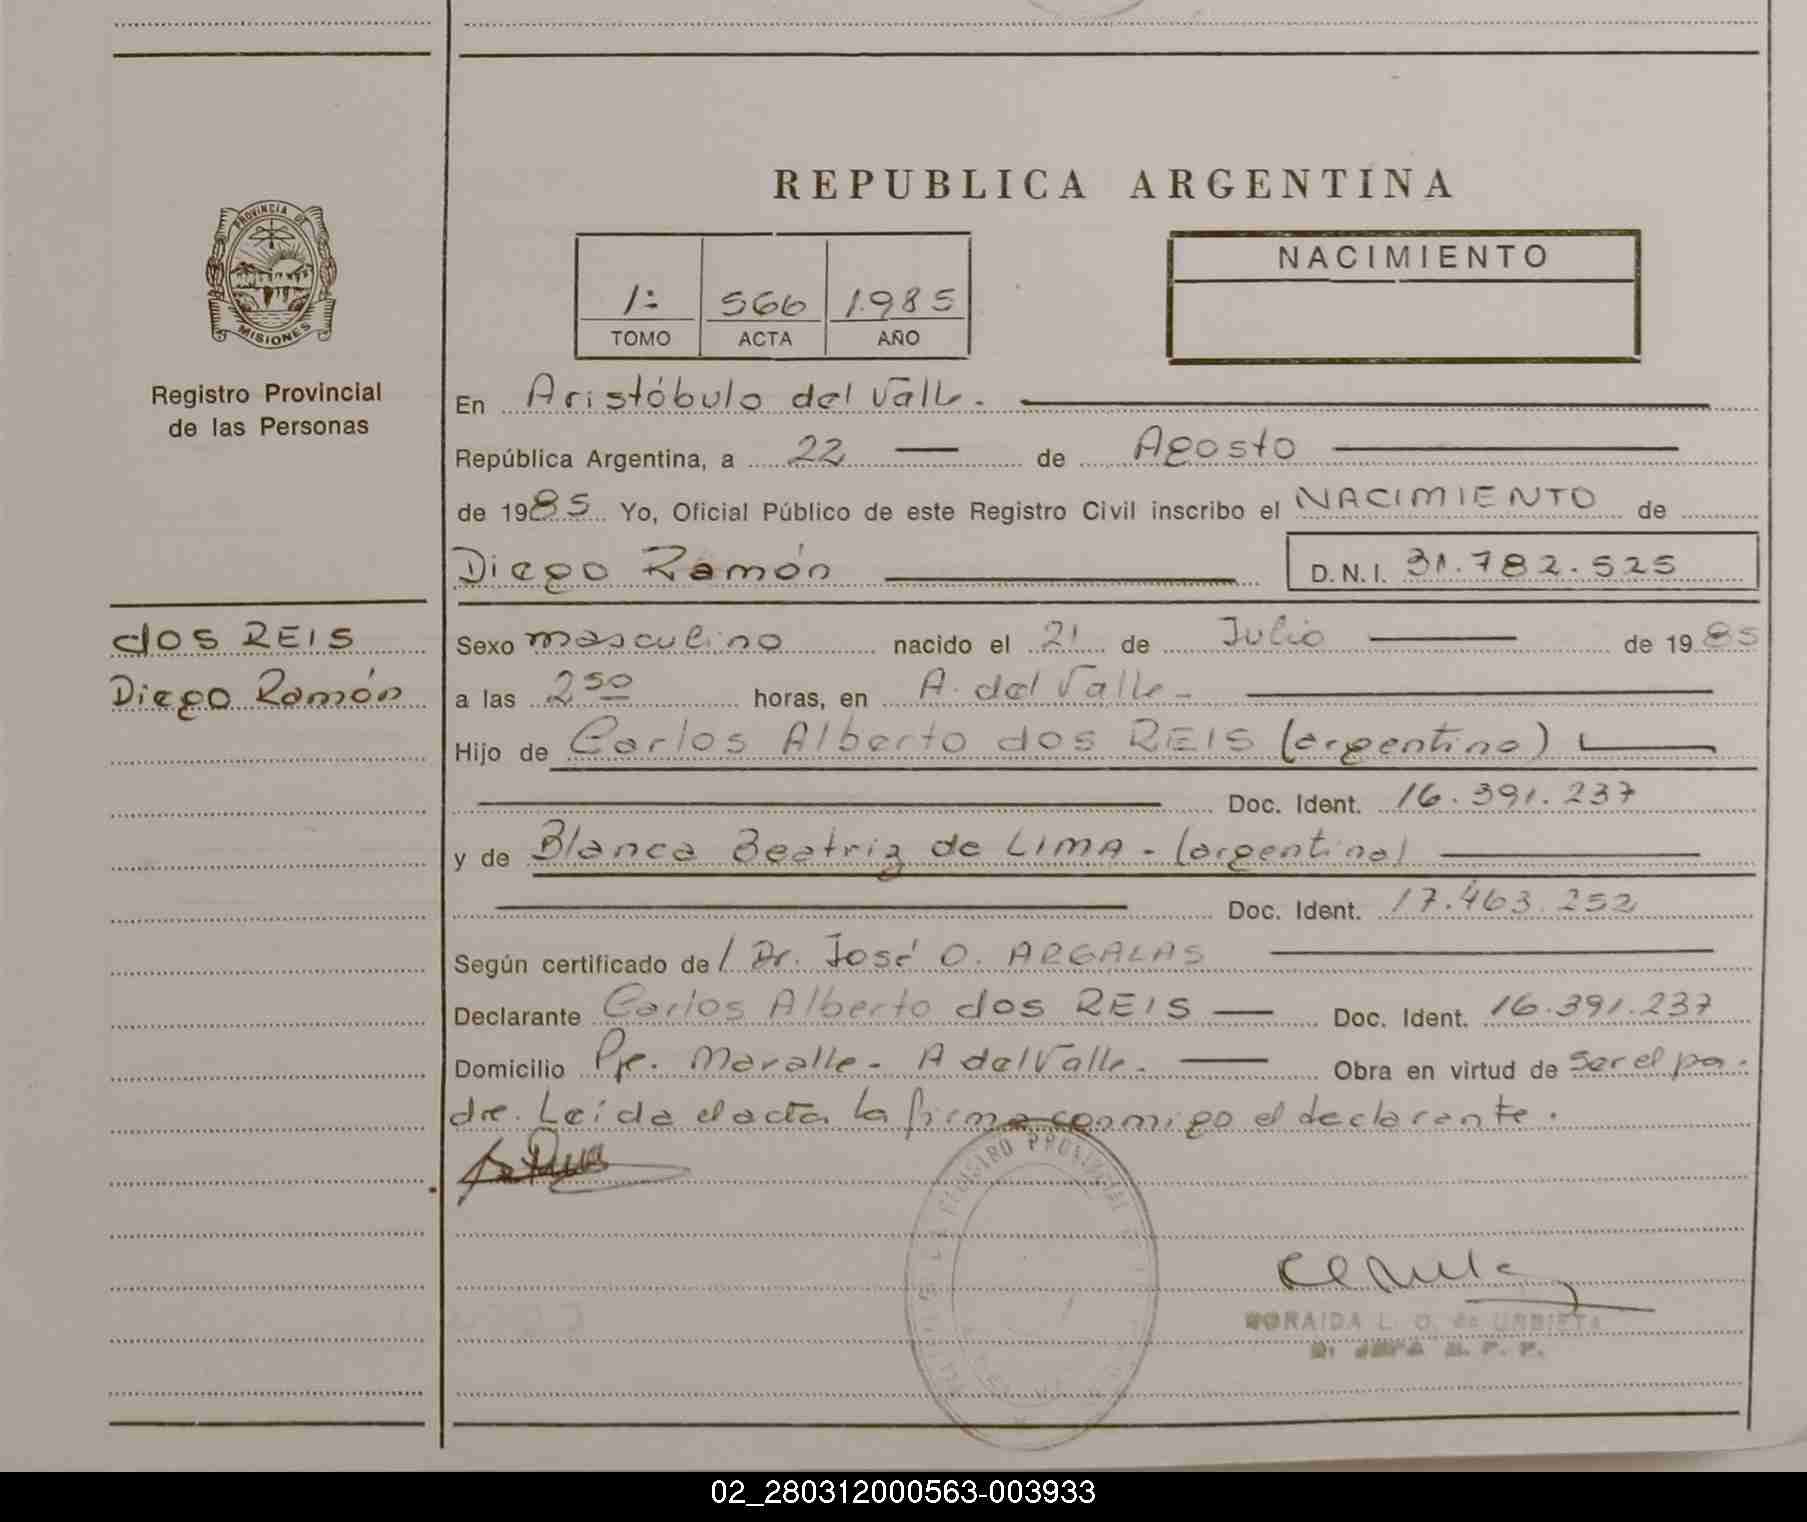 PROVINCIA DE
MISIONES
Registro Provincial
de las Personas
REPUBLICA ARGENTINA
1: 566 1.985
TOMO ACTA AÑO
NACIMIENTO
En Aristóbulo del Valle.
República Argentina, a 22 de Agosto
de 1985 Yo, Oficial Público de este Registro Civil inscribo el NACIMIENTO de
Diego Ramón D.N.I. 31.782.525
dos REIS
Diego Ramón
Sexo masculino nacido el 21 de Julio de 1985
a las 2 50 horas, en A. del Valle -
Hijo de Carlos Alberto dos REIS (argentino)
Doc. Ident. 16.391.237
y de Blanca Beatriz de LIMA - (argentina)
Doc. Ident. 17.463.252
Según certificado de / Dr. José O. ARGALAS
Declarante Carlos Alberto dos REIS Doc. Ident. 16.391.237
Domicilio Pje. Maralle - A del Valle. Obra en virtud de ser el pa-
dre. Leída el acta la firma conmigo el declarante.
REGISTRO PROVINCIAL
L. O. de URBIETA
02_280312000563-003933